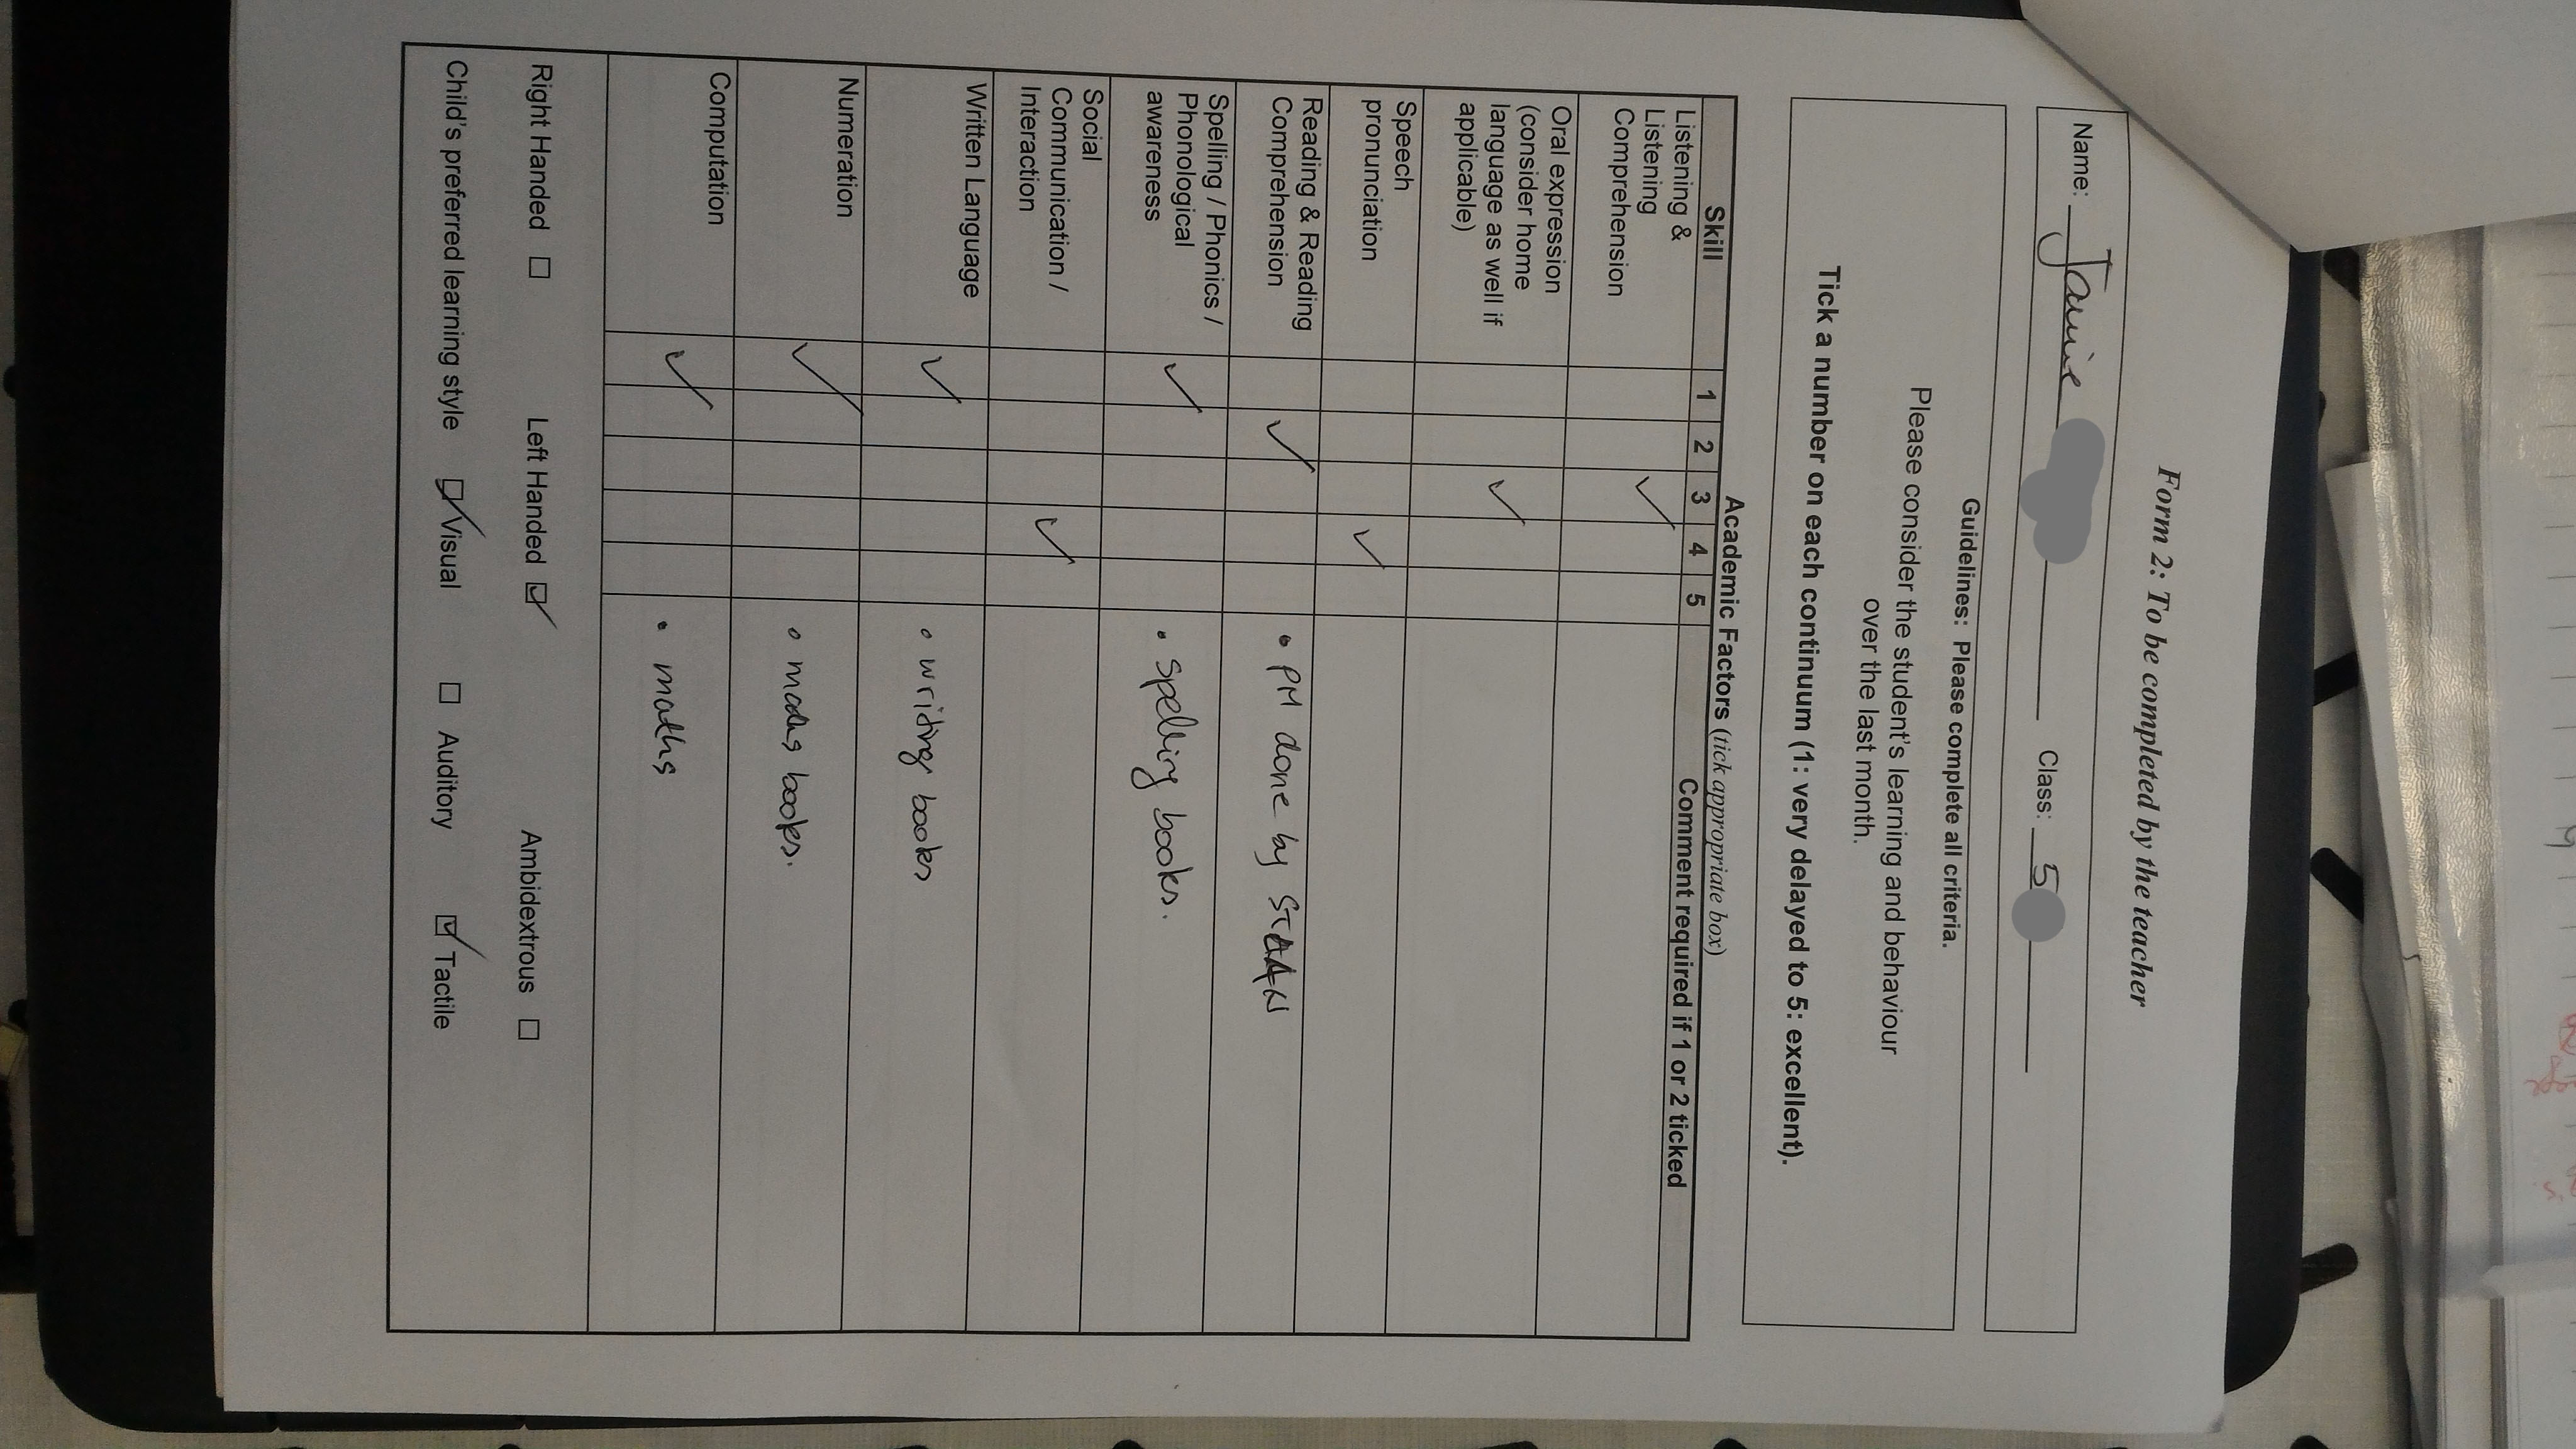 Form 2: To be completed by the teacher
Name: Jamie Class: 5
Guidelines: Please complete all criteria.
Please consider the student's learning and behaviour
over the last month.
Tick a number on each continuum (1: very delayed to 5: excellent).
Academic Factors (tick appropriate box)
Skill 1 2 3 4 5 Comment required if 1 or 2 ticked
Listening &
Listening
Comprehension ✓
Oral expression
(consider home
language as well if
applicable) ✓
Speech
pronunciation ✓
Reading & Reading
Comprehension ✓ • PM done by
Spelling / Phonics /
Phonological
awareness ✓ • spelling books.
Social
Communication /
Interaction ✓
Written Language ✓ • writing books
Numeration ✓ • maths books.
Computation ✓ • maths
Right Handed ☐ Left Handed ☑ Ambidextrous ☐
Child's preferred learning style ☑ Visual ☐ Auditory ☑ Tactile